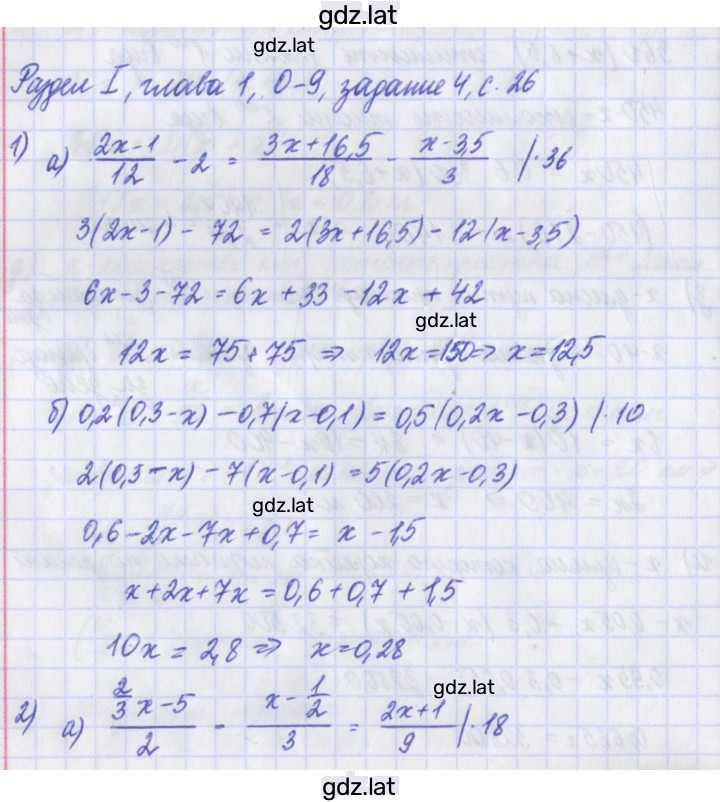 gdz.lat
gdz.lat
Раздел I, глава 1, О-9, задание 4, с. 26
1) а) (2x-1)/12 - 2 = (3x+16,5)/18 - (x-3,5)/3 |·36
3(2x-1) - 72 = 2(3x+16,5) - 12(x-3,5)
6x-3-72 = 6x+33-12x+42
gdz.lat
12x = 75+75 ⇒ 12x=150 ⇒ x=12,5
б) 0,2(0,3-x) - 0,7(x-0,1) = 0,5(0,2x-0,3) |·10
2(0,3-x) - 7(x-0,1) = 5(0,2x-0,3)
gdz.lat
0,6-2x-7x+0,7 = x-1,5
x+2x+7x = 0,6+0,7+1,5
10x = 2,8 ⇒ x=0,28
gdz.lat
2) а) (2/3 x-5)/2 - (x-1/2)/3 = (2x+1)/9 |·18
gdz.lat